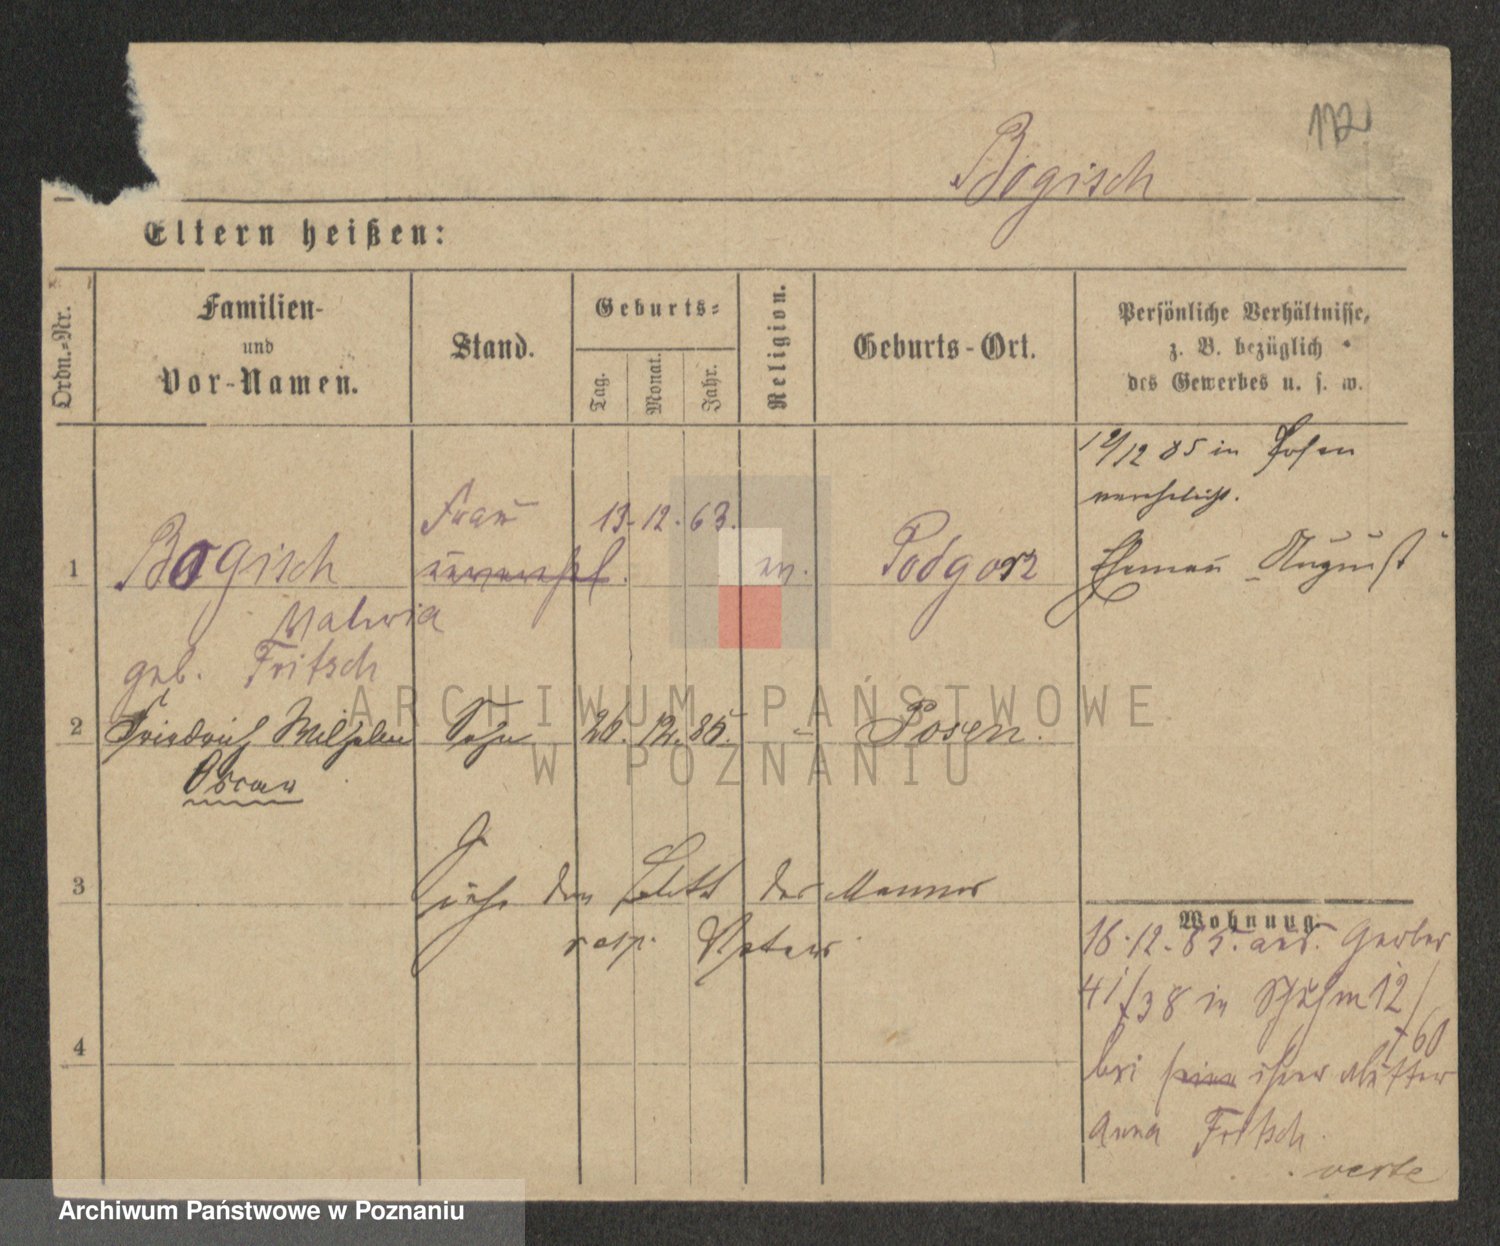 172
Bogisch
Eltern heißen:
Ordn.-Nr.
Familien-
und
Vor-Namen.
Stand.
Geburts-
Tag.
Monat.
Jahr.
Religion.
Geburts-Ort.
Persönliche Verhältnisse,
z. B. bezüglich
des Gewerbes u. s. w.
12 85 in Posen
verehelicht.
Ehemann August
1
Bogisch
Frau
unverehel.
13. 12. 63.
ev.
Podgorz
Malwia
geb. Fritsch
2
Friedrich Wilhelm
Sohn
26. 12. 85.
Posen.
Oscar
3
Siehe den Blatt des Mannes
resp. Vaters.
4
Wohnung.
16. 12. 85. aus. Gerber
41/38 in 12/
+60
bei seiner ihrer Mutter
Anna Fritsch.
verte
ARCHIWUM PAŃSTWOWE
W POZNANIU
Archiwum Państwowe w Poznaniu